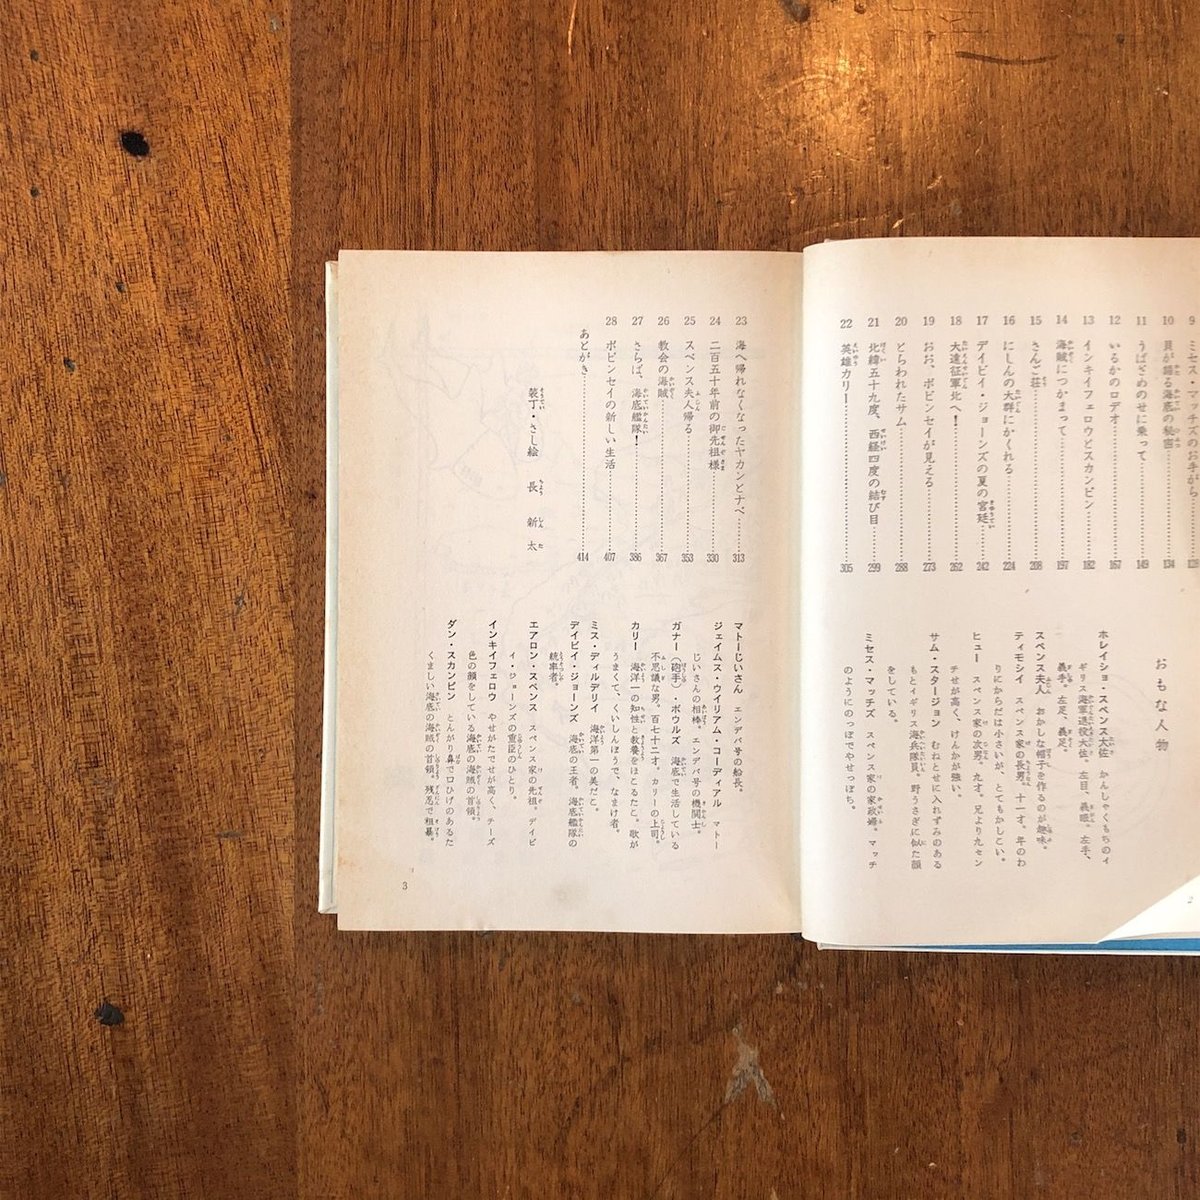 9 ミセス・マッチズのお手がら 128
10 貝が語る海底の秘密 134
11 うばざめのせに乗って 149
12 いるかのロデオ 167
13 インキイフェロウとスカンピン 182
14 海賊につかまって 197
15 さんご荘 208
16 にしんの大群にかくれる 224
17 デイビイ・ジョーンズの夏の宮廷 242
18 大遠征軍北へ! 262
19 おお、ボビンセイが見える 273
20 とらわれたサム 288
21 北緯五十九度、西経四度の結び目 299
22 英雄カリー 305
おもな人物
ホレイショ・スペンス大佐 かんしゃくもちのイ
ギリス海軍退役大佐。左目、義眼、左手、
義手、左足、義足。
スペンス夫人 おかしな帽子を作るのが趣味。
ティモシイ スペンス家の長男。十一才。年のわ
りにからだは小さいが、とてもかしこい。
ヒュー スペンス家の次男。九才。兄より九セン
チせが高く、けんかが強い。
サム・スタージョン むねとせに入れずみのある
もとイギリス海兵隊員。野うさぎに似た顔
をしている。
ミセス・マッチズ スペンス家の家政婦。マッチ
のようにのっぽでやせっぽち。
2
23 海へ帰れなくなったヤカンとナベ 313
24 二百五十年前の御先祖様 330
25 スペンス夫人帰る 353
26 教会の海賊 367
27 さらば、海底艦隊! 386
28 ボビンセイの新しい生活 407
あとがき 414
装丁・さし絵 長 新太
マトーじいさん エンデバ号の船長。
ジェイムス・ウイリアム・コーディアル マトー
じいさんの相棒。エンデバ号の機関士。
ガナー(砲手)・ボウルズ 海底で生活している
不思議な男。百七十二才。カリーの上司。
カリー 海洋一の知性と教養をほこるたこ。歌が
うまくて、くいしんぼうで、なまけ者。
ミス・ディルデリイ 海洋第一の美だこ。
デイビイ・ジョーンズ 海底の王者。海底艦隊の
統率者。
エアロン・スペンス スペンス家の先祖。デイビ
イ・ジョーンズの重臣のひとり。
インキイフェロウ やせがたでせが高く、チーズ
色の顔をしている海底の海賊の首領。
ダン・スカンピン とんがり鼻で口ひげのあるた
くましい海底の海賊の首領。残忍で粗暴。
3